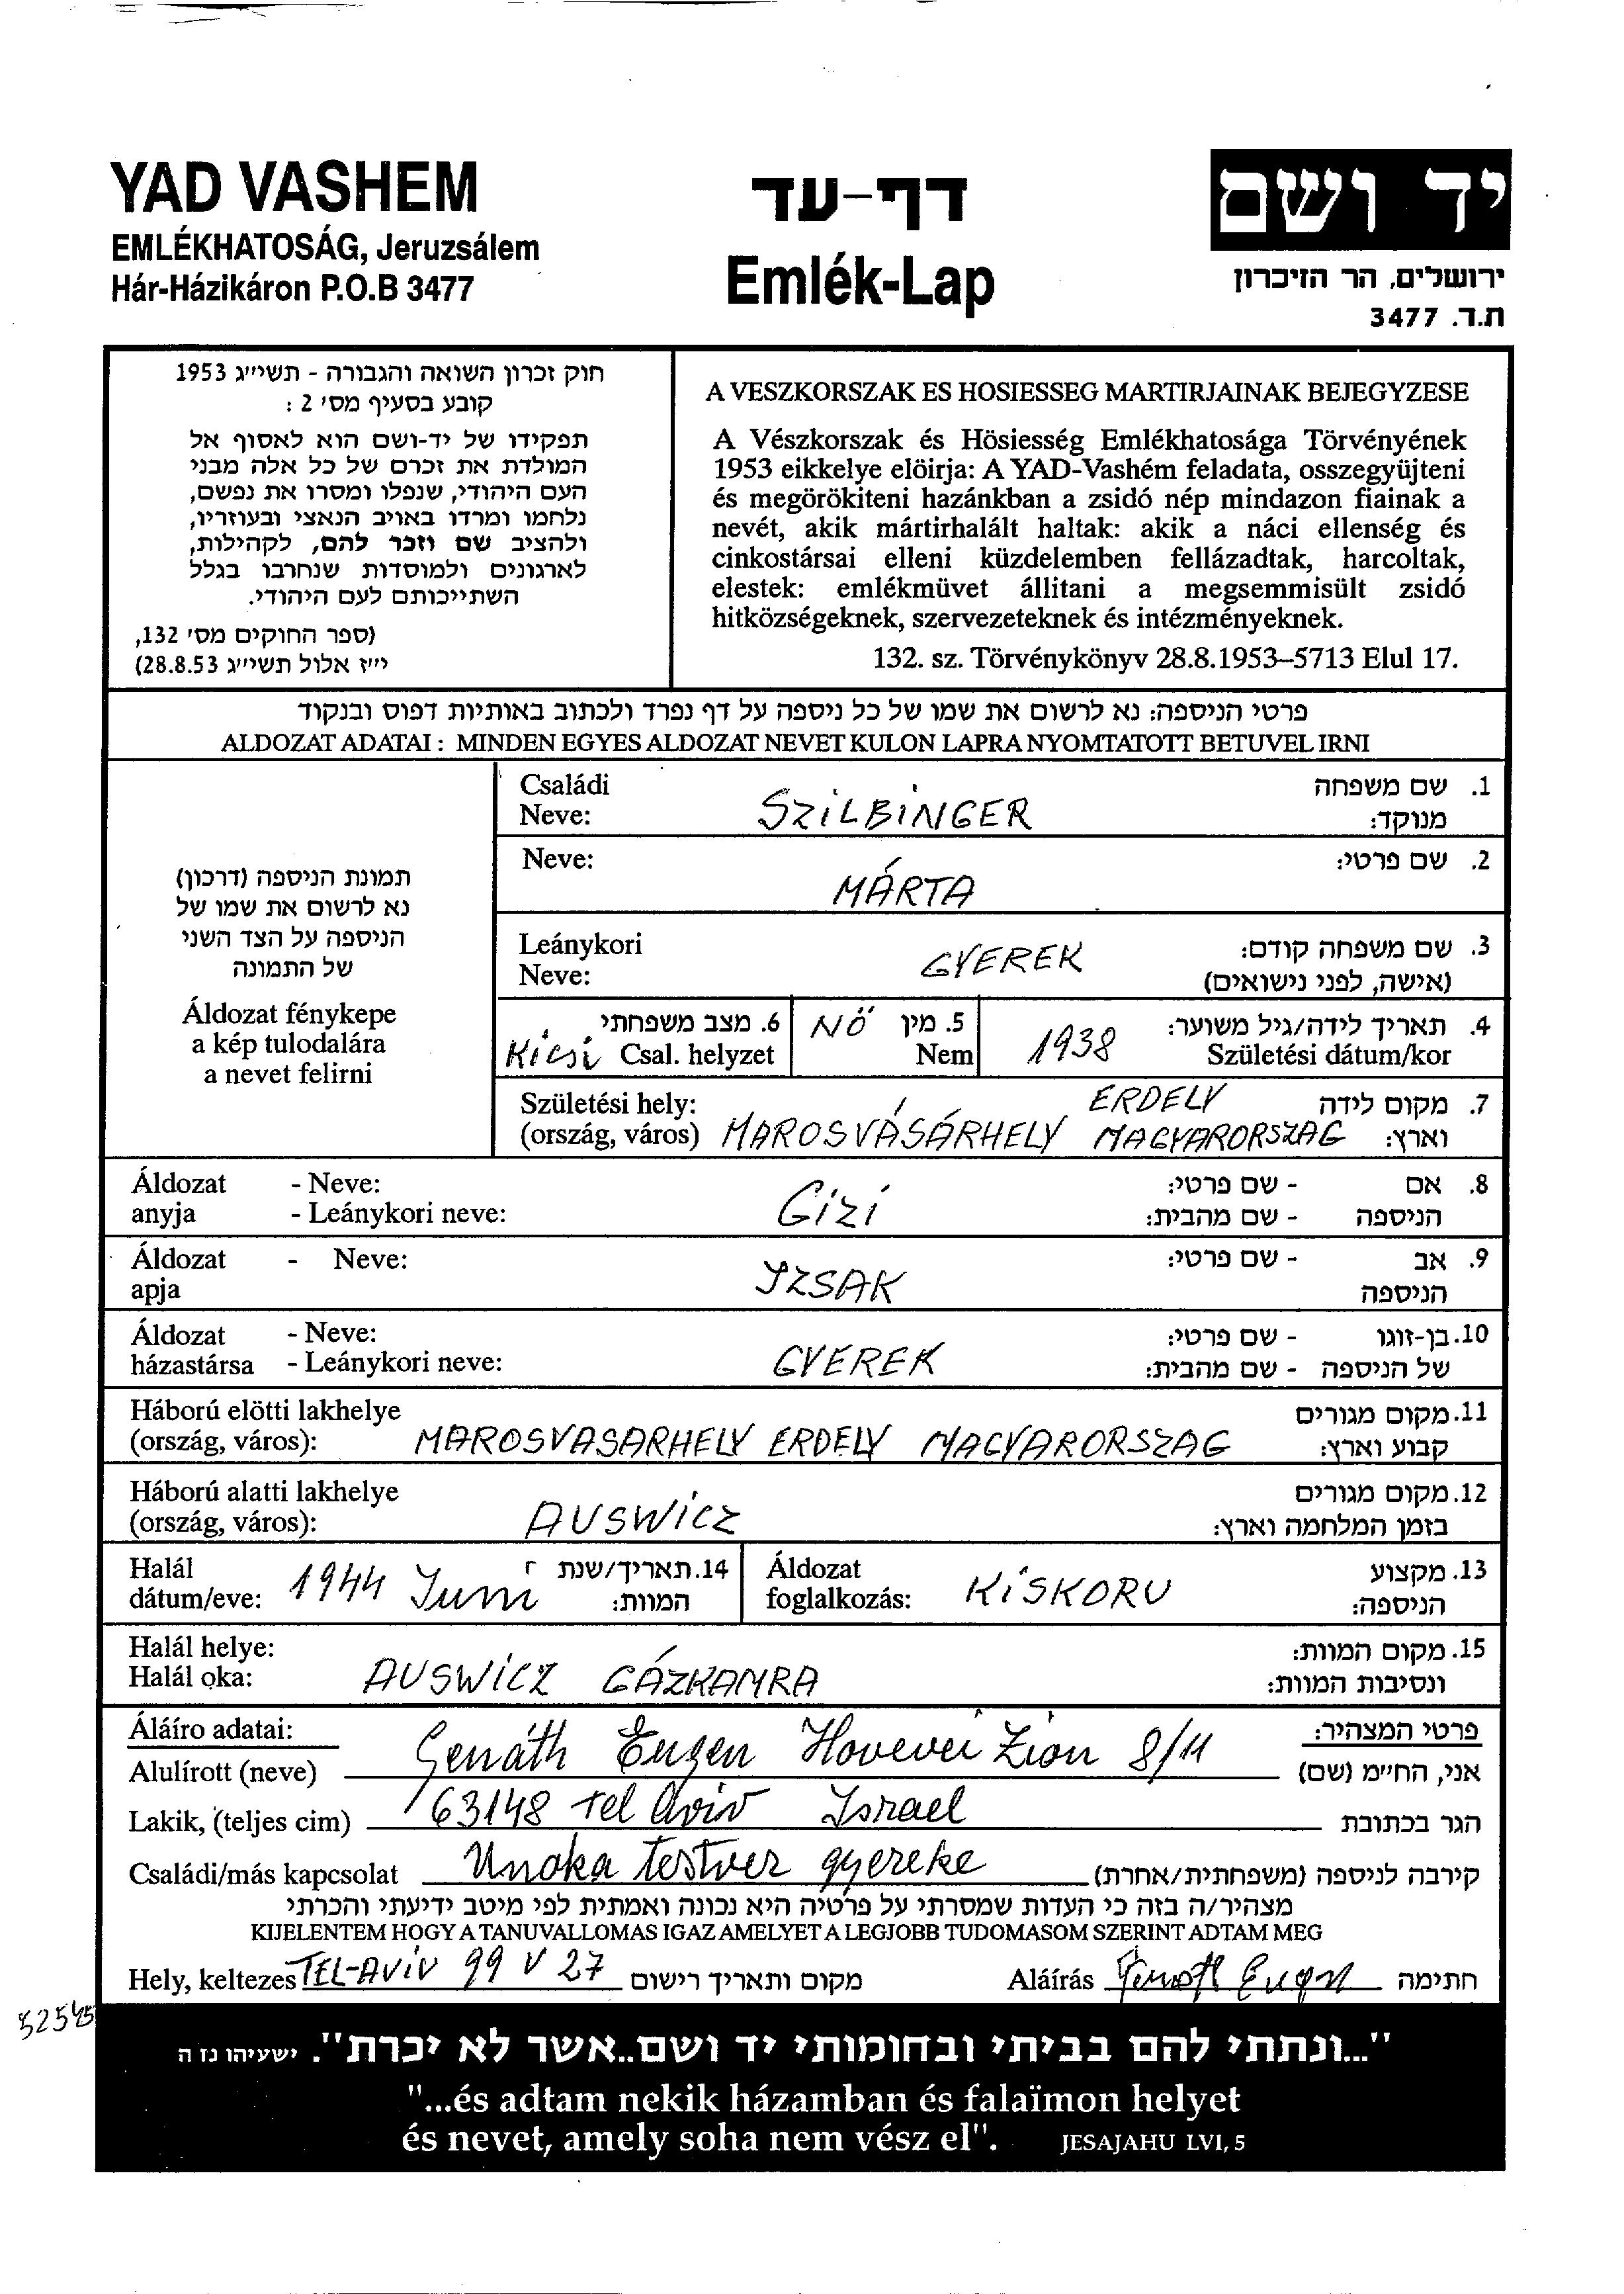 YAD VASHEM
EMLÉKHATOSÁG, Jeruzsálem
Hár-Házikáron P.O.B 3477
דף-עד
Emlék-Lap
יד ושם
ירושלים, הר הזיכרון
ת.ד. 3477
חוק זכרון השואה והגבורה - תשי״ג 1953
קובע בסעיף מס' 2 :
תפקידו של יד-ושם הוא לאסוף אל
המולדת את זכרם של כל אלה מבני
העם היהודי, שנפלו ומסרו את נפשם,
נלחמו ומרדו באויב הנאצי ובעוזריו,
ולהציב שם וזכר להם, לקהילות,
לארגונים ולמוסדות שנחרבו בגלל
השתייכותם לעם היהודי.
(ספר החוקים מס' 132,
י״ז אלול תשי״ג 28.8.53)
A VESZKORSZAK ES HOSIESSEG MARTIRJAINAK BEJEGYZESE
A Vészkorszak és Hösiesség Emlékhatosága Törvényének
1953 eikkelye elöirja: A YAD-Vashém feladata, osszegyüjteni
és megörökiteni hazánkban a zsidó nép mindazon fiainak a
nevét, akik mártirhalált haltak: akik a náci ellenség és
cinkostársai elleni küzdelemben fellázadtak, harcoltak,
elestek: emlékmüvet állitani a megsemmisült zsidó
hitközségeknek, szervezeteknek és intézményeknek.
132. sz. Törvénykönyv 28.8.1953–5713 Elul 17.
פרטי הניספה: נא לרשום את שמו של כל ניספה על דף נפרד ולכתוב באותיות דפוס ובנקוד
ALDOZAT ADATAI : MINDEN EGYES ALDOZAT NEVET KULON LAPRA NYOMTATOTT BETUVEL IRNI
תמונת הניספה (דרכון)
נא לרשום את שמו של
הניספה על הצד השני
של התמונה
Áldozat fénykepe
a kép tulodalára
a nevet felirni
Családi
Neve: SZILBINGER 1. שם משפחה
מנוקד:
Neve: MÁRTA 2. שם פרטי:
Leánykori
Neve: GYEREK 3. שם משפחה קודם:
(אישה, לפני נישואים)
Kicsi 6. מצב משפחתי
Csal. helyzet
NŐ 5. מין
Nem
1938 4. תאריך לידה/גיל משוער:
Születési dátum/kor
Születési hely: ERDELY 7. מקום לידה
(ország, város) MAROSVÁSÁRHELY MAGYARORSZAG וארץ:
Áldozat - Neve: 8. אם - שם פרטי:
anyja - Leánykori neve: Gizi הניספה - שם מהבית:
Áldozat - Neve: 9. אב - שם פרטי:
apja IZSAK הניספה
Áldozat - Neve: 10. בן-זוגו - שם פרטי:
házastársa - Leánykori neve: GYEREK של הניספה - שם מהבית:
Háború elötti lakhelye 11. מקום מגורים
(ország, város): MAROSVASARHELY ERDELY MAGYARORSZAG קבוע וארץ:
Háború alatti lakhelye 12. מקום מגורים
(ország, város): AUSWicz בזמן המלחמה וארץ:
Halál
dátum/eve: 1944 Juni 14. תאריך/שנת
המוות:
Áldozat
foglalkozás: KISKORU 13. מקצוע
הניספה:
Halál helye: 15. מקום המוות:
Halál oka: AUSWICZ GÁZKAMRA ונסיבות המוות:
Aláíro adatai: פרטי המצהיר:
Alulírott (neve) Genáth Eugen Hovevei Zion 8/11 אני, החי״מ (שם)
Lakik, (teljes cim) 63148 Tel Aviv Israel הגר בכתובת
Családi/más kapcsolat Unoka testver gyereke קירבה לניספה (משפחתית/אחרת)
מצהיר/ה בזה כי העדות שמסרתי על פרטיה היא נכונה ואמתית לפי מיטב ידיעתי והכרתי
KIJELENTEM HOGY A TANUVALLOMAS IGAZ AMELYET A LEGJOBB TUDOMASOM SZERINT ADTAM MEG
Hely, keltezes TEL-AViV 99 V 27 מקום ותאריך רישום Aláírás Genáth Eugen חתימה
"...ונתתי להם בביתי ובחומותי יד ושם..אשר לא יכרת". ישעיהו נז ה
"...és adtam nekik házamban és falaïmon helyet
és nevet, amely soha nem vész el". JESAJAHU LVI, 5